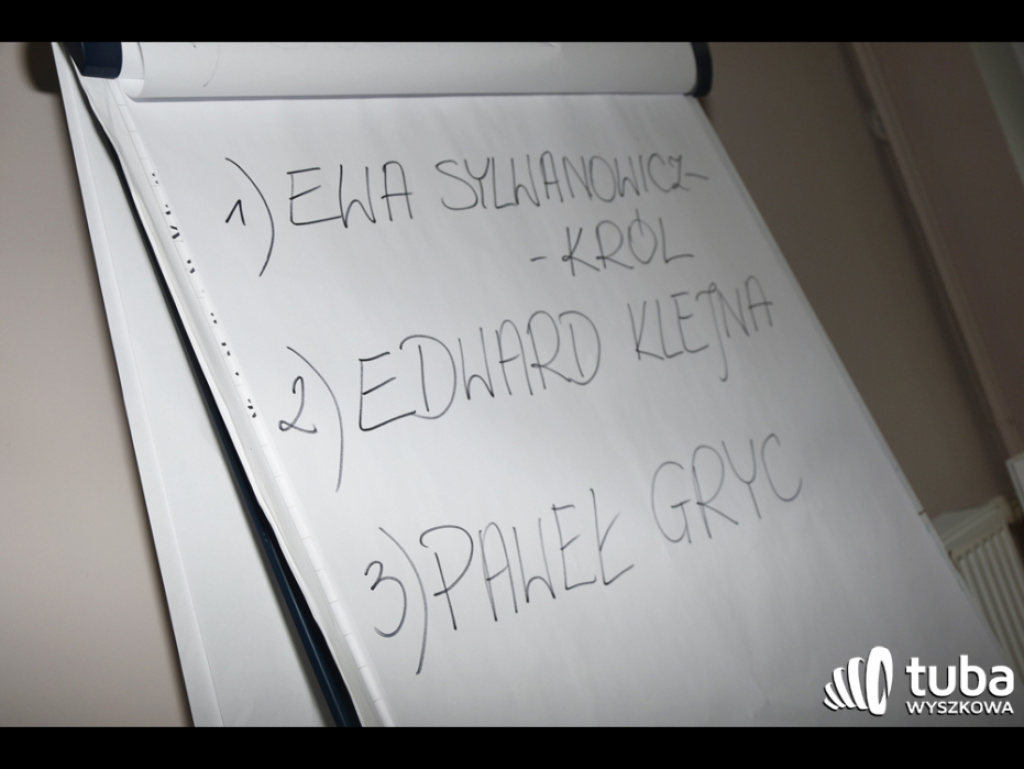 1) EWA SYLWANOWICZ-
-KRÓL
2) EDWARD KLEJNA
3) PAWEŁ GRYC
tuba
WYSZKOWA